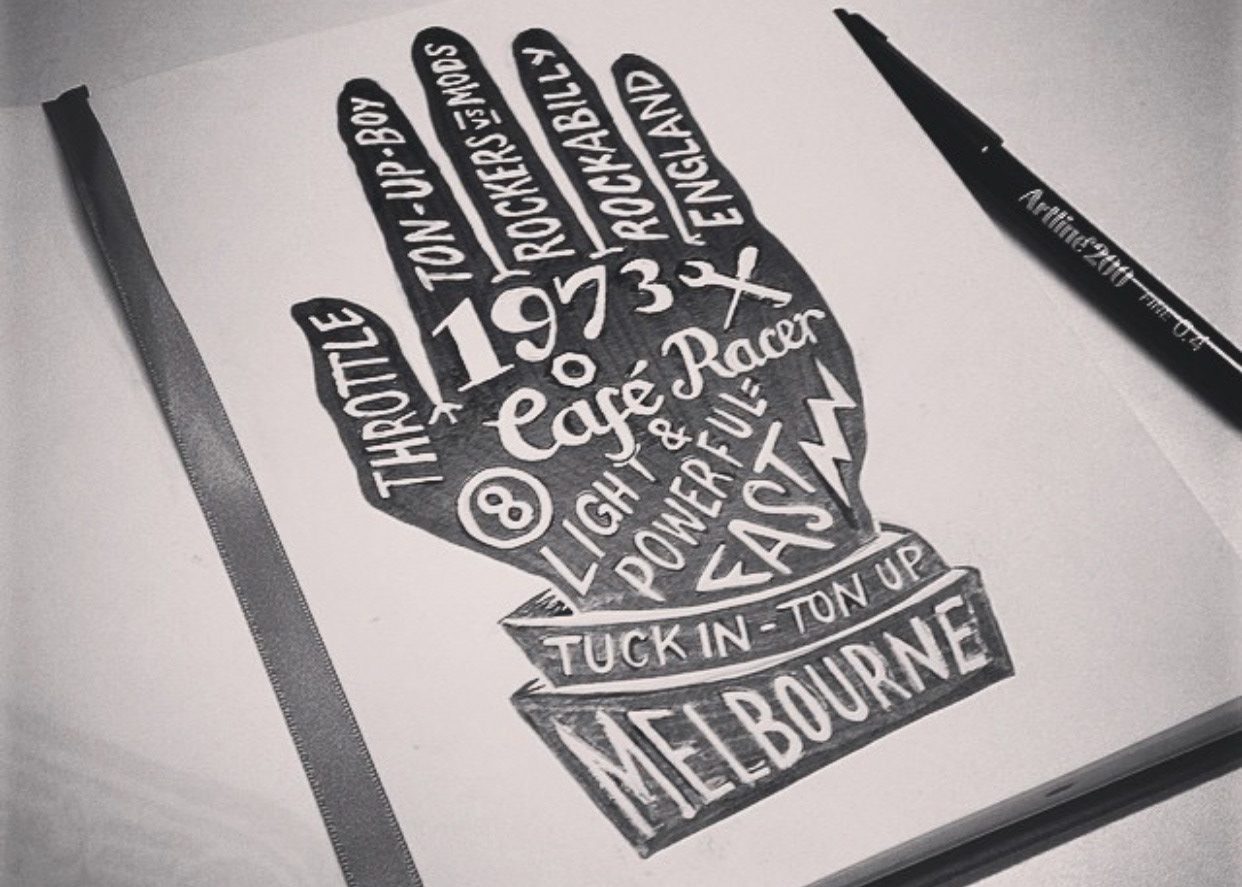 THROTTLE
TON-UP-BOY
ROCKERS VS MODS
ROCKABILLY
ENGLAND
1973
Café Racer
8
LIGHT &
POWERFUL
FAST
TUCK IN - TON UP
MELBOURNE
Artline 200
FINE 0.4